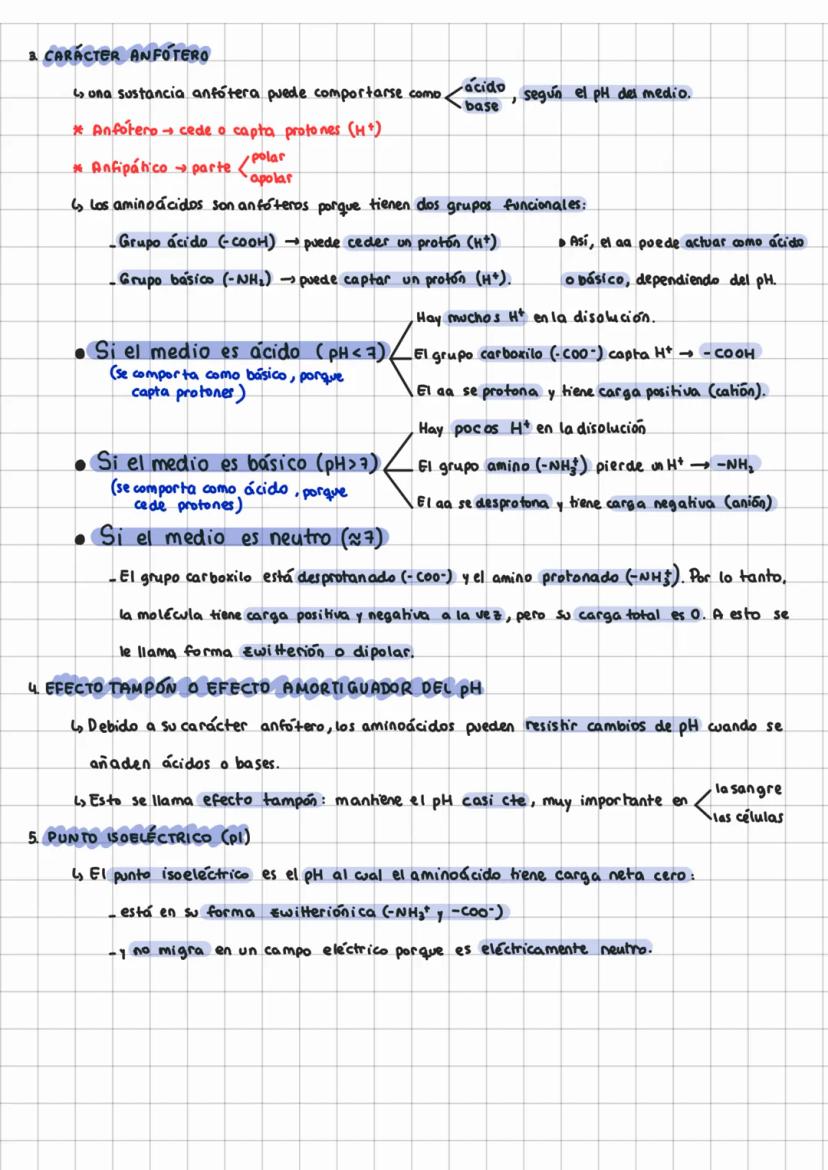 3. CARÁCTER ANFÓTERO
↳ una sustancia anfótera puede comportarse como < ácido
base , según el pH del medio.
* Anfótero → cede o capta protones (H⁺)
* Anfipático → parte < polar
apolar
↳ Los aminoácidos son anfóteros porque tienen dos grupos funcionales:
- Grupo ácido (-COOH) → puede ceder un protón (H⁺)
▸ Así, el aa puede actuar como ácido
- Grupo básico (-NH₂) → puede captar un protón (H⁺).
o básico, dependiendo del pH.
Hay muchos H⁺ en la disolución.
• Si el medio es ácido (pH < 7)
El grupo carboxilo (-COO⁻) capta H⁺ → -COOH
(se comporta como básico, porque
capta protones)
El aa se protona y tiene carga positiva (catión).
Hay pocos H⁺ en la disolución
• Si el medio es básico (pH > 7)
El grupo amino (-NH₃⁺) pierde un H⁺ → -NH₂
(se comporta como ácido, porque
cede protones)
El aa se desprotona y tiene carga negativa (anión)
• Si el medio es neutro (≈7)
- El grupo carboxilo está desprotanado (-COO⁻) y el amino protonado (-NH₃⁺). Por lo tanto,
la molécula tiene carga positiva y negativa a la vez, pero su carga total es 0. A esto se
le llama forma zwitterión o dipolar.
4. EFECTO TAMPÓN O EFECTO AMORTIGUADOR DEL pH
↳ Debido a su carácter anfótero, los aminoácidos pueden resistir cambios de pH cuando se
añaden ácidos o bases.
↳ Esto se llama efecto tampón: mantiene el pH casi cte, muy importante en < la sangre
las células
5. PUNTO ISOELÉCTRICO (pI)
↳ El punto isoeléctrico es el pH al cual el aminoácido tiene carga neta cero:
- está en su forma zwitteriónica (-NH₃⁺ y -COO⁻)
- y no migra en un campo eléctrico porque es eléctricamente neutro.